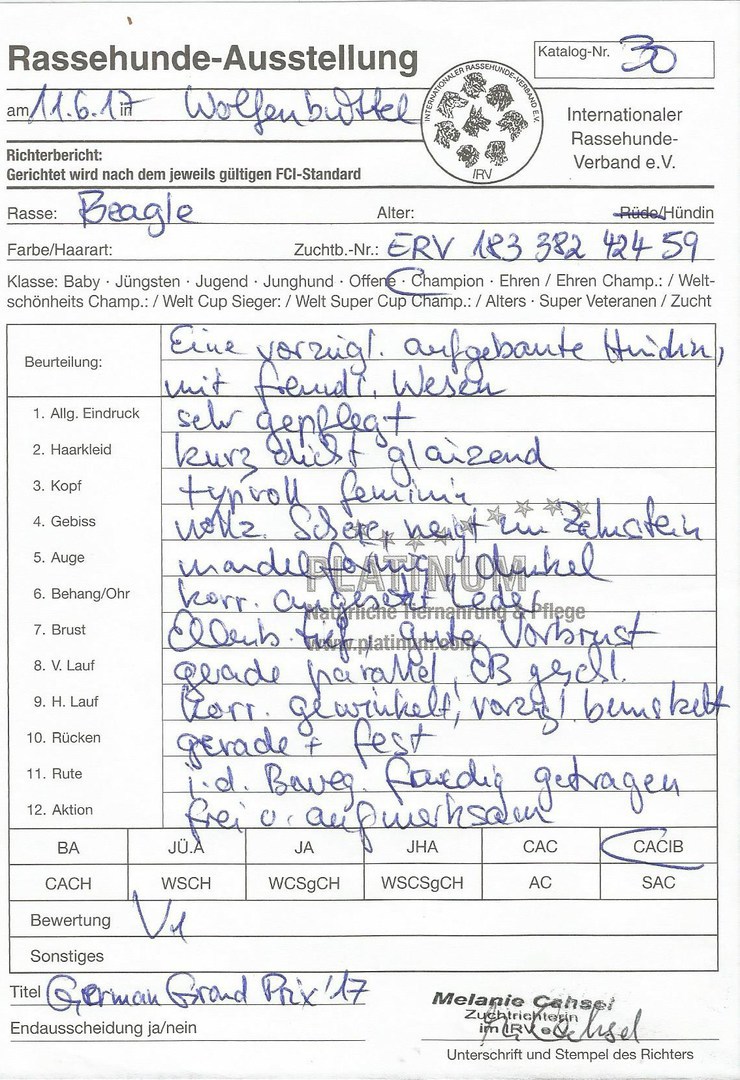 Rassehunde-Ausstellung
Katalog-Nr. 30
am 11.6.17 in Wolfenbüttel
INTERNATIONALER RASSEHUNDE-VERBAND E.V.
IRV
Internationaler
Rassehunde-
Verband e.V.
Richterbericht:
Gerichtet wird nach dem jeweils gültigen FCI-Standard
Rasse: Beagle Alter: Rüde/Hündin
Farbe/Haarart: Zuchtb.-Nr.: ERV 183 382 424 59
Klasse: Baby · Jüngsten · Jugend · Junghund · Offene · Champion · Ehren / Ehren Champ.: / Welt-
schönheits Champ.: / Welt Cup Sieger: / Welt Super Cup Champ.: / Alters · Super Veteranen / Zucht
Beurteilung: Eine vorzügl. aufgebaute Hündin,
mit freundl. Wesen
1. Allg. Eindruck sehr gepflegt
2. Haarkleid kurz dicht glänzend
3. Kopf typvoll feminin
4. Gebiss vollz. Schere, neigt zu Zahnstein
5. Auge mandelförmig, dunkel
PLATINUM
6. Behang/Ohr korr. angesetzt Leder
Natürliche Tiernahrung & Pflege
7. Brust Ellenb. tief, gute Vorbrust
www.platinum.com
8. V. Lauf gerade parallel, EB geschl.
9. H. Lauf korr. gewinkelt, vorzügl. bemuskelt
10. Rücken gerade + fest
11. Rute i.d. Beweg. freudig getragen
12. Aktion frei u. aufmerksam
BA JÜ.A JA JHA CAC CACIB
CACH WSCH WCSgCH WSCSgCH AC SAC
Bewertung V1
Sonstiges
Titel German Grand Prix '17
Endausscheidung ja/nein
Melanie Cahsel
Zuchtrichterin
im IRV e.V.
Cahsel
Unterschrift und Stempel des Richters